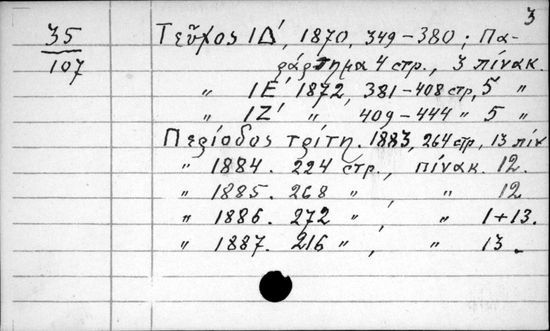 3
35
107
Τεῦχος ΙΔ′, 1870, 349-380; Πα-
ράρτημα 4 στρ., 3 πίνακ.
„ ΙΕ′ 1872, 381-408 στρ, 5 „
„ ΙΖ′ „ 409-444 „ 5 „
Περίοδος τρίτη. 1883, 264 στρ, 13 πίν
„ 1884. 224 στρ., πίνακ. 12.
„ 1885. 268 „ „ 12
„ 1886. 272 „, „ 1+13.
„ 1887. 216 „, „ 13.